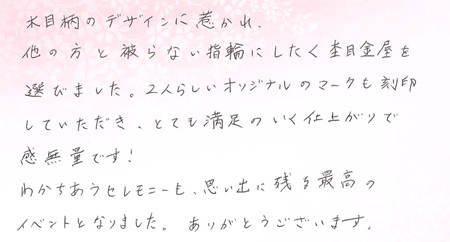 木目柄のデザインに惹かれ、
他の方と被らない指輪にしたく杢目金屋を
選びました。2人らしいオリジナルのマークも刻印
していただき、とても満足のいく仕上がりで
感無量です！
わかちあうセレモニーも、思い出に残る最高の
イベントとなりました。ありがとうございます。